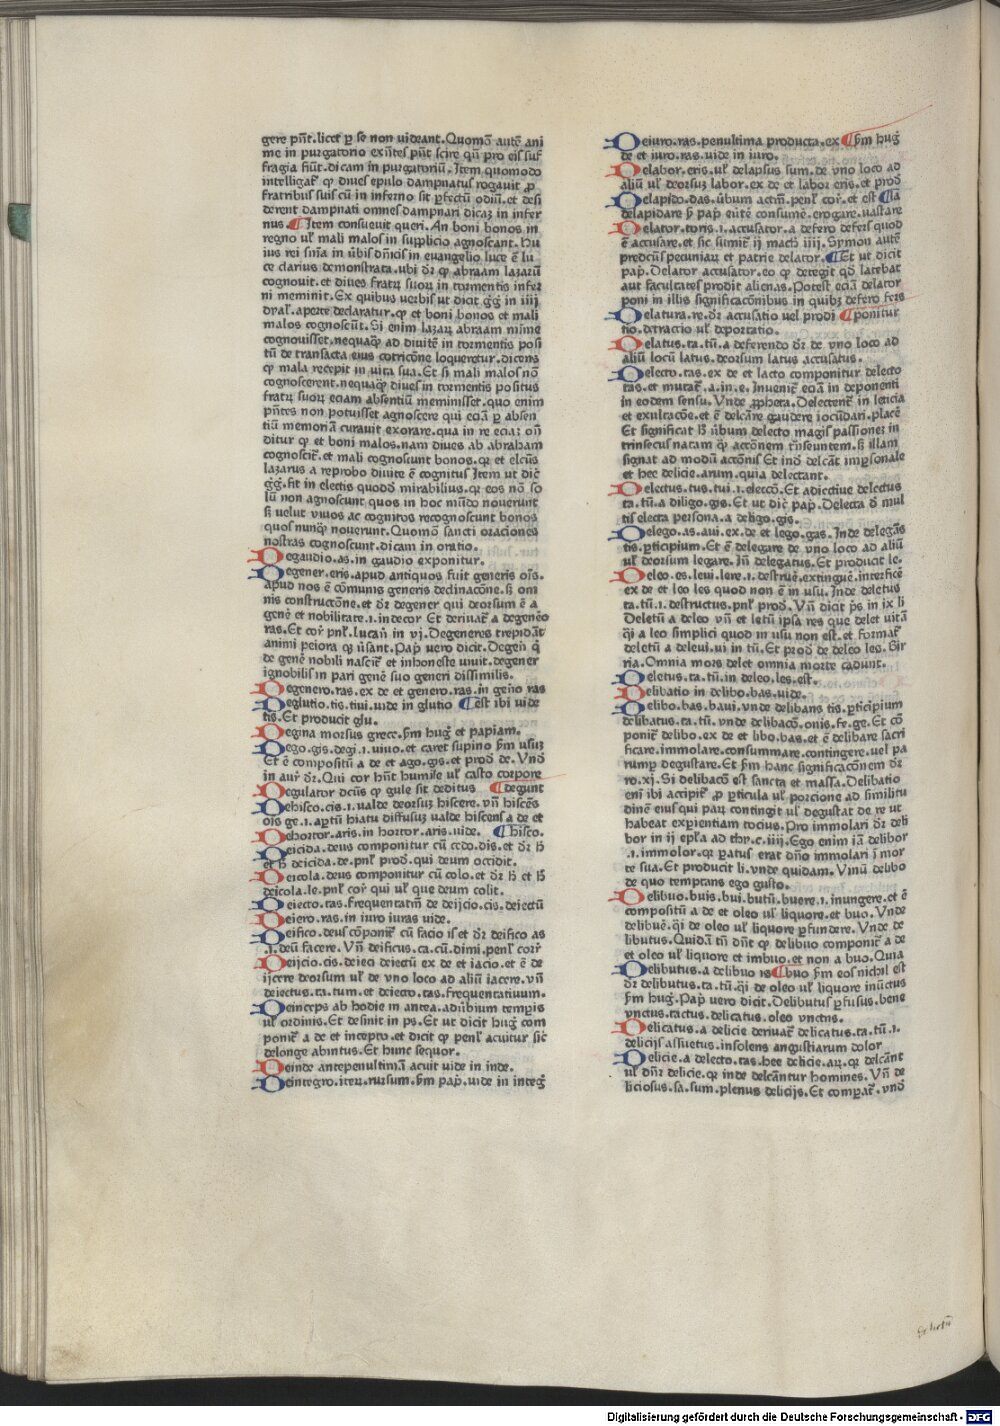 gere pñt.licet ꝑ se non uideant.Quomõ autẽ ani
me in purgatorio exñtes pñt scire qñ pro eis suf
fragia fiũt.dicam in purgatoriũ.Item quomodo
intelligat̃ ꝙ diues epulo dampnatus rogauit ꝓ
fratribus suis cũ in inferno sit ꝑfectũ odiũ.et desi
derent dampnati omnes dampnari dicaʒ in infer
nus.¶Item consueuit queri.An boni bonos in
regno ul̃ mali malos in supplicio agnoscant.Hu
ius rei sñia in ũbis dñicis in euangelio luce ẽ lu
ce clarius demonstrata.ubi dr̃ ꝙ abraam lazarũ
cognouit.et diues fratrꝝ suoꝝ in tormentis infer
ni meminit.Ex quibus uerbis ut dicit g̃g̃ in iiij
dyal̃.aperte declaratur.ꝙ et boni bonos et mali
malos cognoscũt.Si enim lazarꝝ abraam mĩme
cognouisset.nequaꝙ̃ ad diuitẽ in tormentis posi
tũ de transacta eius cotricõne loqueretur.dicens
ꝙ mala recepit in uita sua.Et si mali malos nõ
cognoscerent.nequaꝙ̃ diues in tormentis positus
fratrꝝ suoꝝ eciam absentiũ meminisset.quo enim
pñtes non potuisset agnoscere qui eciã ꝑ absen
tiũ memoriã curauit exorare.qua in re eciaʒ on̄
ditur ꝙ et boni malos.nam diues ab abraham
cognoscit̃.et mali cognoscunt bonos.qꝛ et elcũs
lazarus a reprobo diuite ẽ cognitus Item ut dic̃
g̃g̃.fit in electis quodd̃ mirabilius.qꝛ eos nõ so
lũ non agnoscunt quos in hoc mũdo nouerunt
sʒ uelut uiuos ac cognitos recognoscunt bonos
quos nunꝙ̃ nouerunt.Quomõ sancti oraciones
nostras cognoscunt.dicam in oratio.
Degaudio.as.in gaudio exponitur.
Degener.eris.apud antiquos fuit generis oĩs.
apud nos ẽ cõmunis generis declinacõne.sʒ om
nis constructõne.et dr̃ degener qui deorsum ẽ a
genẽ et nobilitate.i.indecor Et deriuat̃ a degenẽo
ras.Et cor̃ pnl̃.Lucañ in vj.Degeneres trepidãt
animi peiora ꝙ ũsant.Pap̃ uero dicit.Degeñ q̃
de genẽ nobili nascit̃ et inhoneste uiuit.degener
ignobilis in pari genẽ suo generi dissimilis.
Degenero.ras.ex de et genero.ras.in geño ras
Deglutio.tis.tiui.uide in glutio ¶est ibi uide
tis.Et producit glu.
Degina morsus grece.ẜm hug̃ et papiam.
Dego.gis.degi.i.uiuo.et caret supino ẜm usuʒ
Et ẽ compositũ a de et ago.gis.et prod̃ de.Vnd̃
in aur̃ dr̃.Qui cor hñt humile ul̃ casto corpore
Degulator dc̃us ꝙ gule sit deditus ¶degunt
Dehisco.cis.i.ualde deorsuʒ hiscere.vñ hiscẽs
oĩs ge.i.aꝑtũ hiatu diffusuʒ ualde hiscens a de et
Dehortor.aris.in hortor.aris.uide. ¶hisco.
Deicida.deus componitur cũ cedo.dis.et dr̃ h̃
et h̃ deicida.de.pnl̃ prod̃.qui deum occidit.
Deicola.deus componitur cũ colo.et dr̃ h̃ et h̃
deicola.le.pnl̃ cor̃ qui ul̃ que deum colit.
Deiecto.tas.frequentatiũ de deijcio.cis.deiectũ
Deiero.ras.in iuro iuras uide.
Deifico.deus cõponit̃ cũ facio is et dr̃ deifico as
.i.deũ facere.Vñ deificus.ca.cũ.dimi.penl̃ corr̃
Deijcio.cis.deieci deiectũ ex de et iacio.et ẽ de
ijcere deorsum ul̃ de vno loco ad aliũ iacere.vñ
deiectus.ta.tum.et deiecto.tas.frequentatiuum.
Deinceps ab hodie in antea.adũbium temꝑis
ul̃ ordinis.Et desinit in ps.Et ut dicit hug̃ com
ponit̃ a de et incepto.et dicit ꝙ penl̃ acuitur sic̃
delonge abintus.Et hunc sequor.
Deinde antepenultimã acuit uide in inde.
Deintegro.iteꝝ.rursum.ẜm pap̃.uide in integ̃
Deiuro.ras.penultima producta.ex ¶ẜm hug̃
de et iuro.ras.uide in iuro.
Delabor.eris.ul̃ delapsus sum.de vno loco ad
aliũ ul̃ deorsuʒ labor.ex de et labor eris.et prod̃
Delapido.das.ũbum actiũ.penl̃ cor̃.et est ¶la
delapidare ẜm pap̃ euẽte consumẽ.erogare.uastare
Delator.toris.i.accusator.a defero defers quod
ẽ accusare.et sic sumit̃ ij mach̃ iiij.Symon autẽ
predc̃us pecuniaꝝ et patrie delator.¶Et ut dicit
pap̃.Delator accusator.eo ꝙ detegit qd̃ latebat
aut facultates prodit alienas.Potest eciã delator
poni in illis significacõnibus in quibʒ defero fers
Delatura.re.dr̃ accusatio uel prodi ¶ponitur
tio.detractio ul̃ deportatio.
Delatus.ta.tũ.a deferendo dr̃ de.vno loco ad
aliũ locũ latus.deorsum latus accusatus.
Delecto.tas.ex de et lacto componitur delecto
tas.et mutat̃.a.in.e.Inuenit̃ eciã in deponenti
in eodem sensu.Vnde ꝓpheta.Delectent̃ in leticia
et exultacõe.et ẽ delcãre gaudere iocũdari.placẽ
Et significat h̃ ũbum delecto magis passioneʒ in
trinsecus natam ꝙ̃ actõnem trñseuntem.sʒ illam
signat ad modũ actõnis Et inde delcãt imꝑsonale
et hee delicie.arum.quia delectant.
Delectus.tus.tui.i.eleccõ.Et adiectiue delectus
ta.tũ.a diligo.gis.Et ut dic̃ pap̃.Delecta d̃ mul
tis electa persona.a deligo.gis.
Delego.as.aui.ex.de et lego.gas.Inde delegãs
tis.ꝑticipium.Et ẽ delegare de vno loco ad aliũ
ul̃ deorsum legare.Iñ delegatus.Et producit le.
Deleo.es.leui.lere.i.destruẽ.extinguẽ.interficẽ
ex de et leo les quod non ẽ in usu.Inde deletus
ta.tũ.i.destructus.pnl̃ prod̃.Vñ dicit p̃s in ix li
Deletũ a deleo vñ et letũ ipsa res que delet uitã
q̃i a leo simplici quod in usu non est.et format̃
deletũ a deleui.ui in tũ.Et prod̃ de deleo les.Sir
ria.Omnia mors delet omnia morte cadunt.
Deletus.ta.tũ.in deleo.les.est.
Delibatio in delibo.bas.uide.
Delibo.bas.baui.vnde delibans tis.ꝑticipium
delibatus.ta.tũ.vnde delibacõ.onis.fe.ge.Et cõ
ponit̃ delibo.ex de et libo.bas.et ẽ delibare sacri
ficare.immolare.consummare.contingere.uel pa
rumꝑ degustare.Et ẜm hanc significacõnem dr̃
ro.xj.Si delibacõ est sancta et massa.Delibatio
eni ibi accipit̃ ꝓ ꝑticula ul̃ porcione ad similitu
dinẽ eius qui paꝝ contingit ul̃ degustat de re ut
habeat exꝑientiam tocius.Pro immolari dr̃ deli
bor in ij epl̃a ad thy.c.iiij.Ego enim iã delibor
.i.immolor.qꝛ ꝑatus erat dño immolari ĩ mor
te sua.Et producit li.vnde quidam.Vinũ delibo
de quo temptans ego gusto.
Delibuo.buis.bui.butũ.buere.i.inungere.et ẽ
compositũ a de et oleo ul̃ liquore.et buo.Vnde
delibuẽ.q̃i de oleo ul̃ liquore ꝑfundere.Vnde de
libutus.Quidã tñ dñt ꝙ delibuo componit̃ a de
et oleo ul̃ liquore et imbuo.et non a buo.Quia
Delibutus.a delibuo is ¶buo ẜm eos nichil est
dr̃ delibutus.ta.tũ.q̃i de oleo ul̃ liquore inũctus
ẜm hug̃.Pap̃ uero dicit.Delibutus ꝑfusus.bene
vnctus.tactus.delicatus.oleo vnctus.
Delicatus.a delicie deriuat̃ delicatus.ta.tũ.i.
delicijs assuetus.insolens angustiarum dolor
Delicie.a delecto.tas.hee delicie.aꝝ.qꝛ delcãnt
ul̃ dñr̃ delicie.qꝛ inde delcãntur homines.Vñ de
liciosus.sa.sum.plenus delicijs.Et comꝑat̃.vnd̃
Digitalisierung gefördert durch die Deutsche Forschungsgemeinschaft - DFG